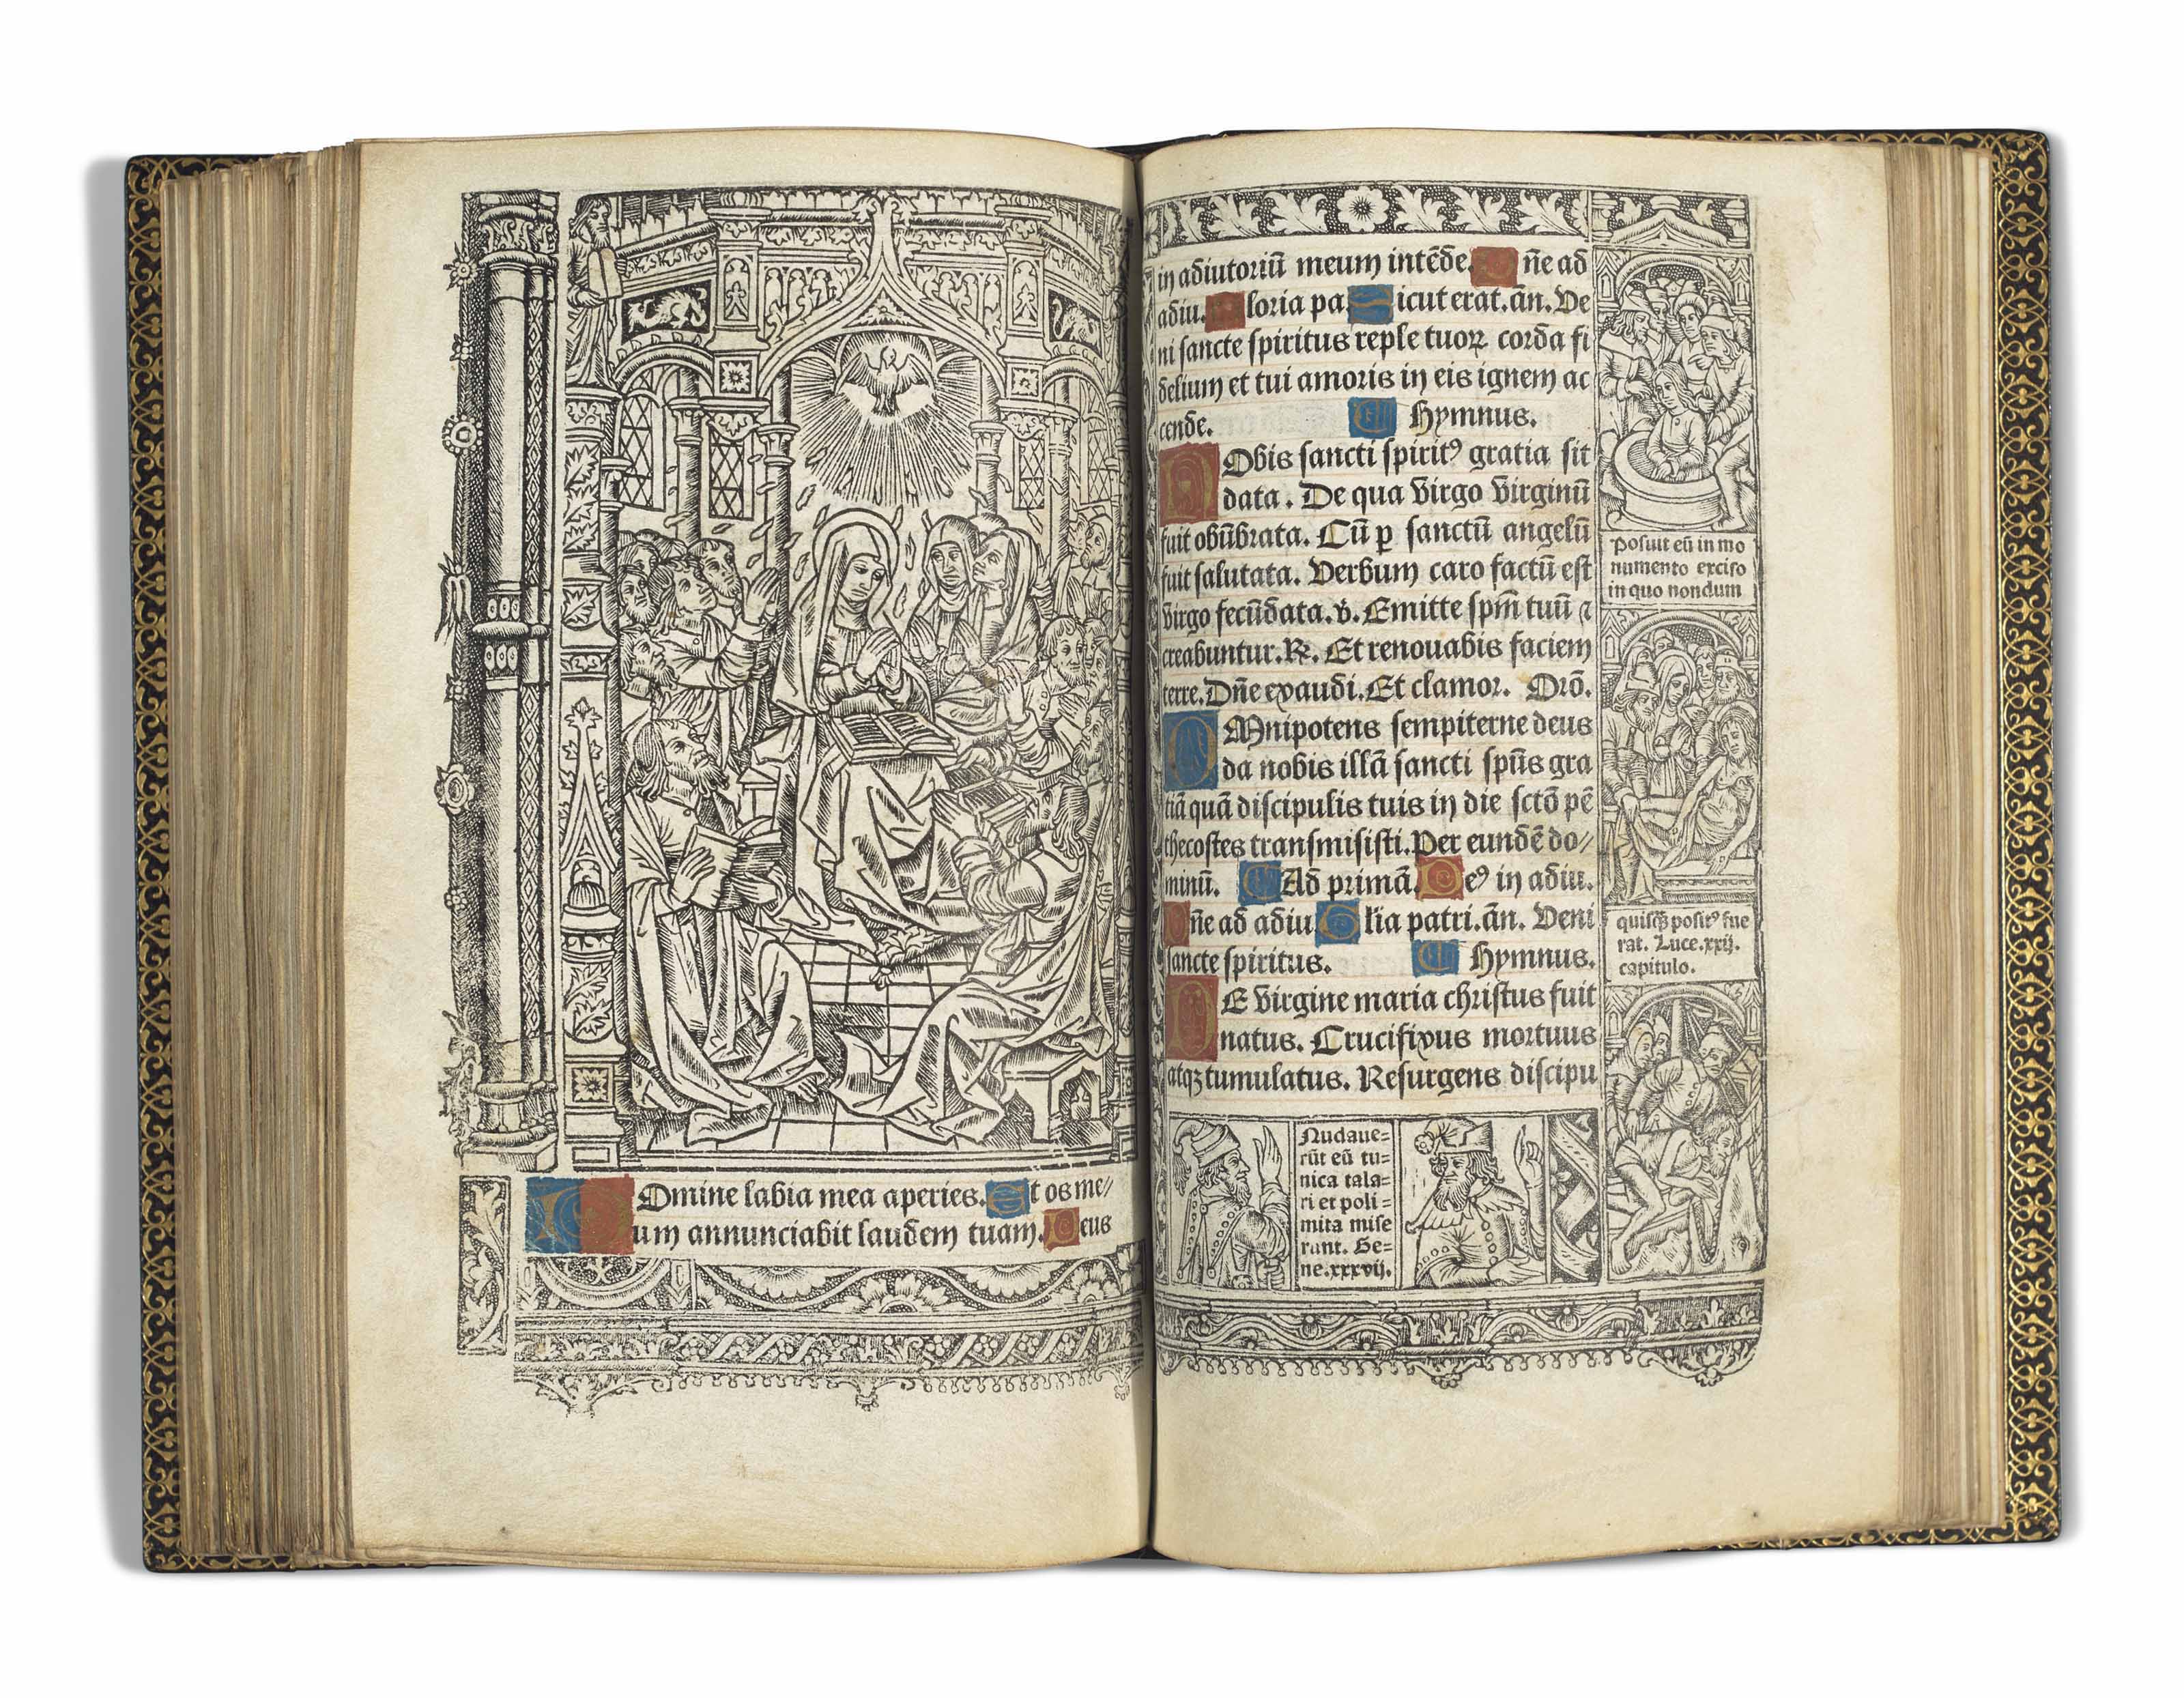 Domine labia mea aperies. Et os me/
um annunciabit laudem tuam. Deus
in adiutoriū meum intēde. Dñe ad
adiu. Gloria pa Sicut erat. añ. Ve
ni sancte spiritus reple tuoꝝ corda fi
delium et tui amoris in eis ignem ac
cende. Hymnus.
Nobis sancti spiritꝰ gratia sit
data. De qua virgo virginū
fuit obūbrata. Cū ꝑ sanctū angelū
fuit salutata. Verbum caro factū est
virgo fecūdata. ꝟ. Emitte spm̄ tuū ⁊
creabuntur. ℞. Et renouabis faciem
terre. Dñe exaudi. Et clamor. Orō.
OMnipotens sempiterne deus
da nobis illā sancti spūs gra
tiā quā discipulis tuis in die sctō pē
thecostes transmisisti. Per eundē do/
minū. Ad primā. Deꝰ in adiu.
Dñe ad adiu Glia patri. añ. Veni
sancte spiritus. Hymnus.
DE virgine maria christus fuit
natus. Crucifixus mortuus
atqꝫ tumulatus. Resurgens discipu
Posuit eū in mo
numento exciso
in quo nondum
quisqꝫ positꝰ fue
rat. Luce. xxij.
capitulo.
Nudaue=
rūt eū tu=
nica tala=
ri et poli=
mita mise
runt. Ge=
ne. xxxvij.